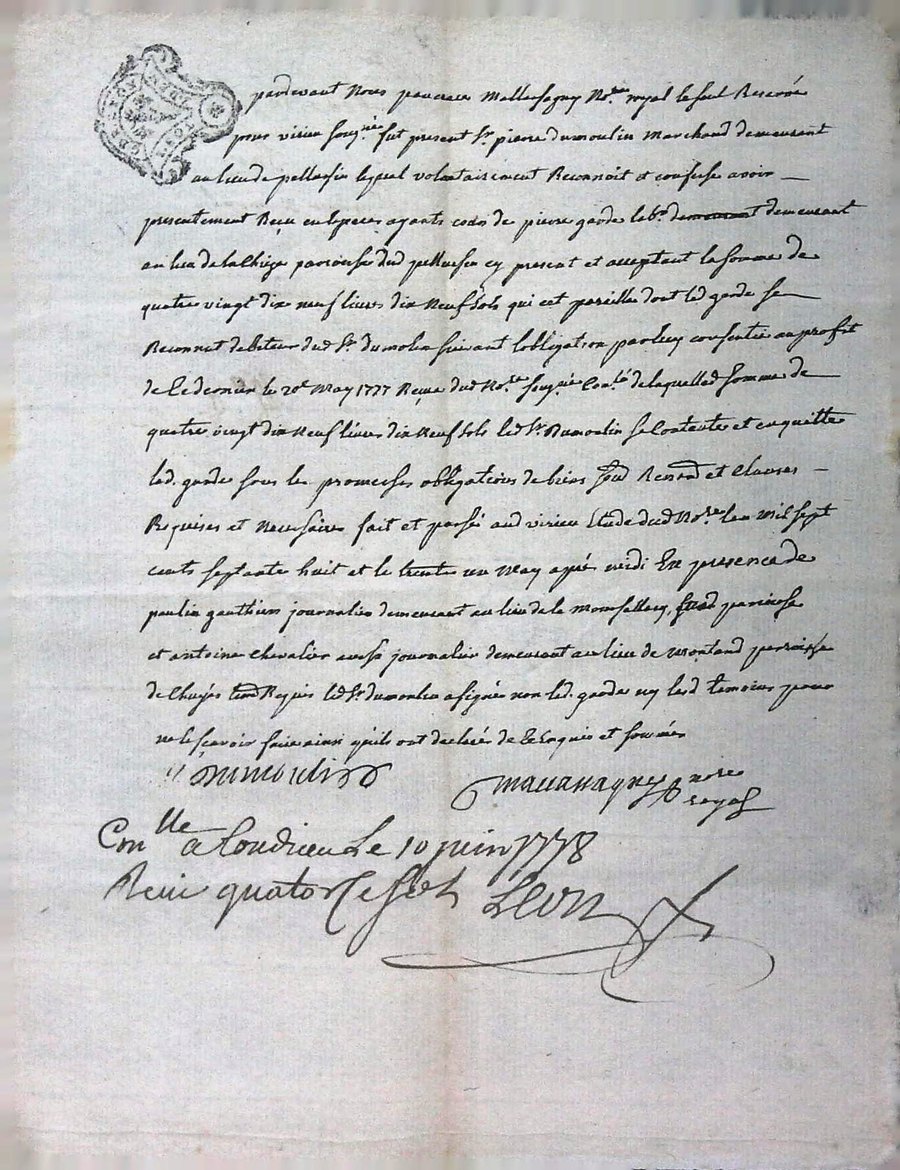 GEN DE LYON
pardevant Nous pancrace Mallassagny No.re royal le seul Reservé
pour virieu soug.né fut present Sr. pierre dumoulin Marchand demeurant
au lieu de pellussin lequel volontairement Reconnoit et confesse avoir —
presentement Reçu en especes ayants cours de pierre garde lab.r demeurant demeurant
au lieu de la Chieze parroisse dud pellussin cy present et acceptant la somme de
quatre vingt dix neuf livres dix neuf sols qui est pareille dont led garde se
Reconnut debiteur dud Sr. dumolin suivant l'obligation par luy consentie au profit
de ce dernier le 20e May 1777 Reçue dud No.re soug.né Con.lé de laquelle d somme de
quatre vingt dix neuf livres dix neuf sols led Sr. Dumoulin se Contente et en quitte
led. garde sous les promesses obligations de biens et Clauses —
Requises et Necessaires fait et passé aud virieu Etude dud No.re l'an mil sept
cents septante huit et le trente un May après midi En presence de
paulin gauthier journalier demeurant au lieu de la parroisse
et antoine Chevalier aussy journalier demeurant au lieu de Montand parroisse
de Chuyés Requis led Sr. dumoulin a signé non led. garde ny lesd temoins pour
ne le scavoir faire ainsi qu'ils ont declarés de ce Enquis et sommés
Dumoulin
Mallassagny no.re
royal
Con.lle a Condrieu Le 10 juin 1778
Reçu quatorze sols Leon